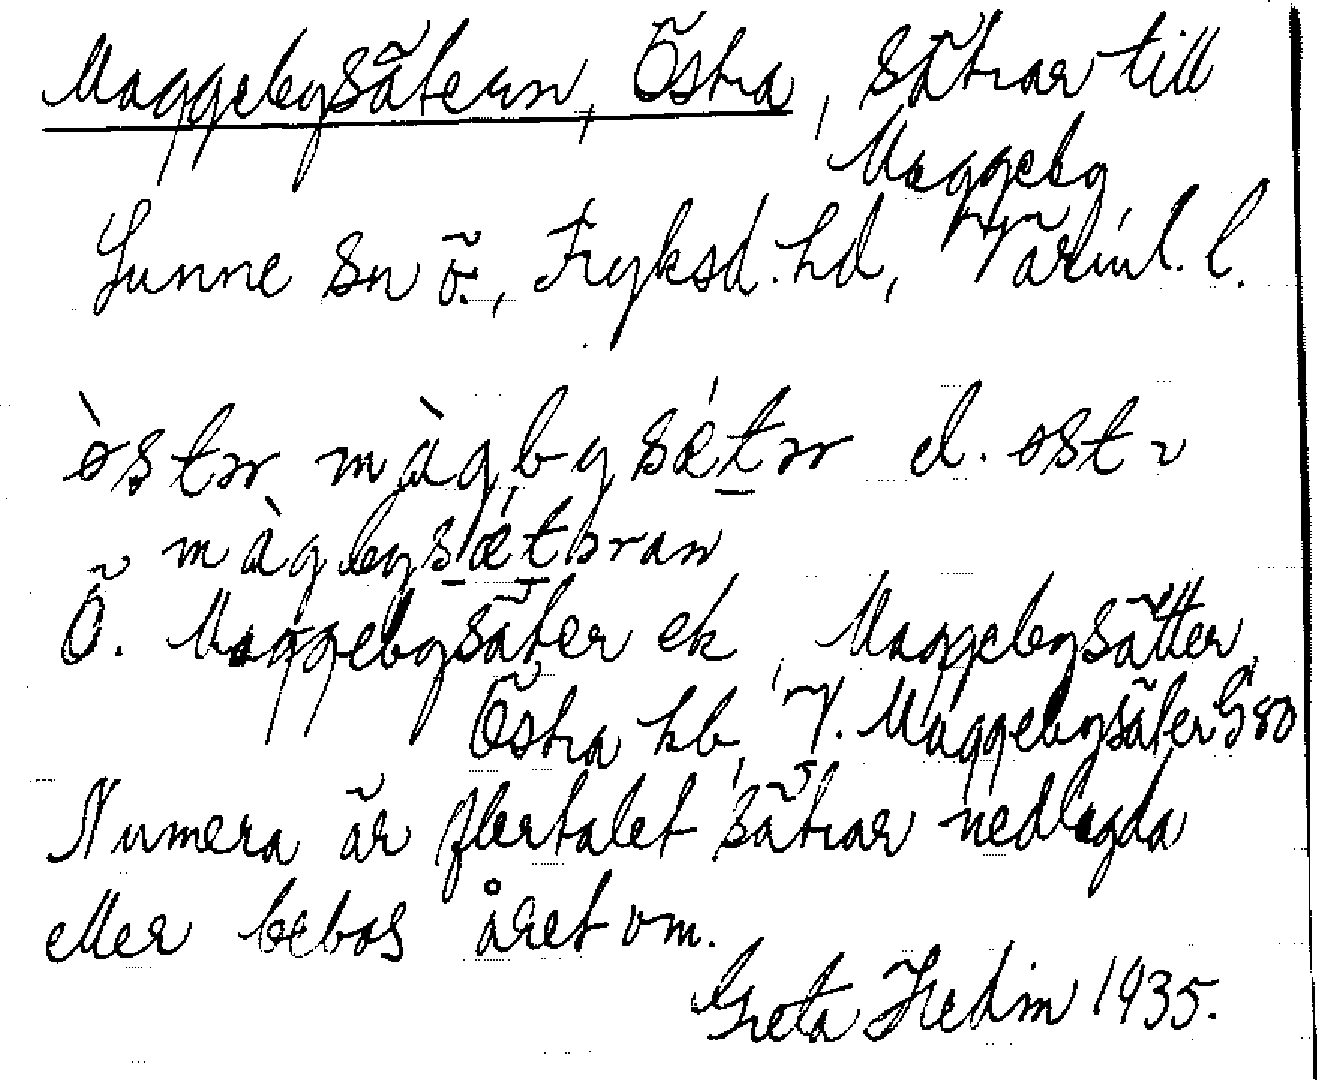 Maggebysätern, Östra, sätrar till
Maggeby
Sunne sn ö., Fryksd. hd, Värml. l.
òstɤr màgbysǽtɤr el. ost
màgbysǽtɤran
Ö. Maggebysäter ek, Maggebysätter,
Östra kb, V. Maggebysäter G 80
Numera är flertalet sätrar nedlagda
eller bebos året om.
Greta Hedin 1935.